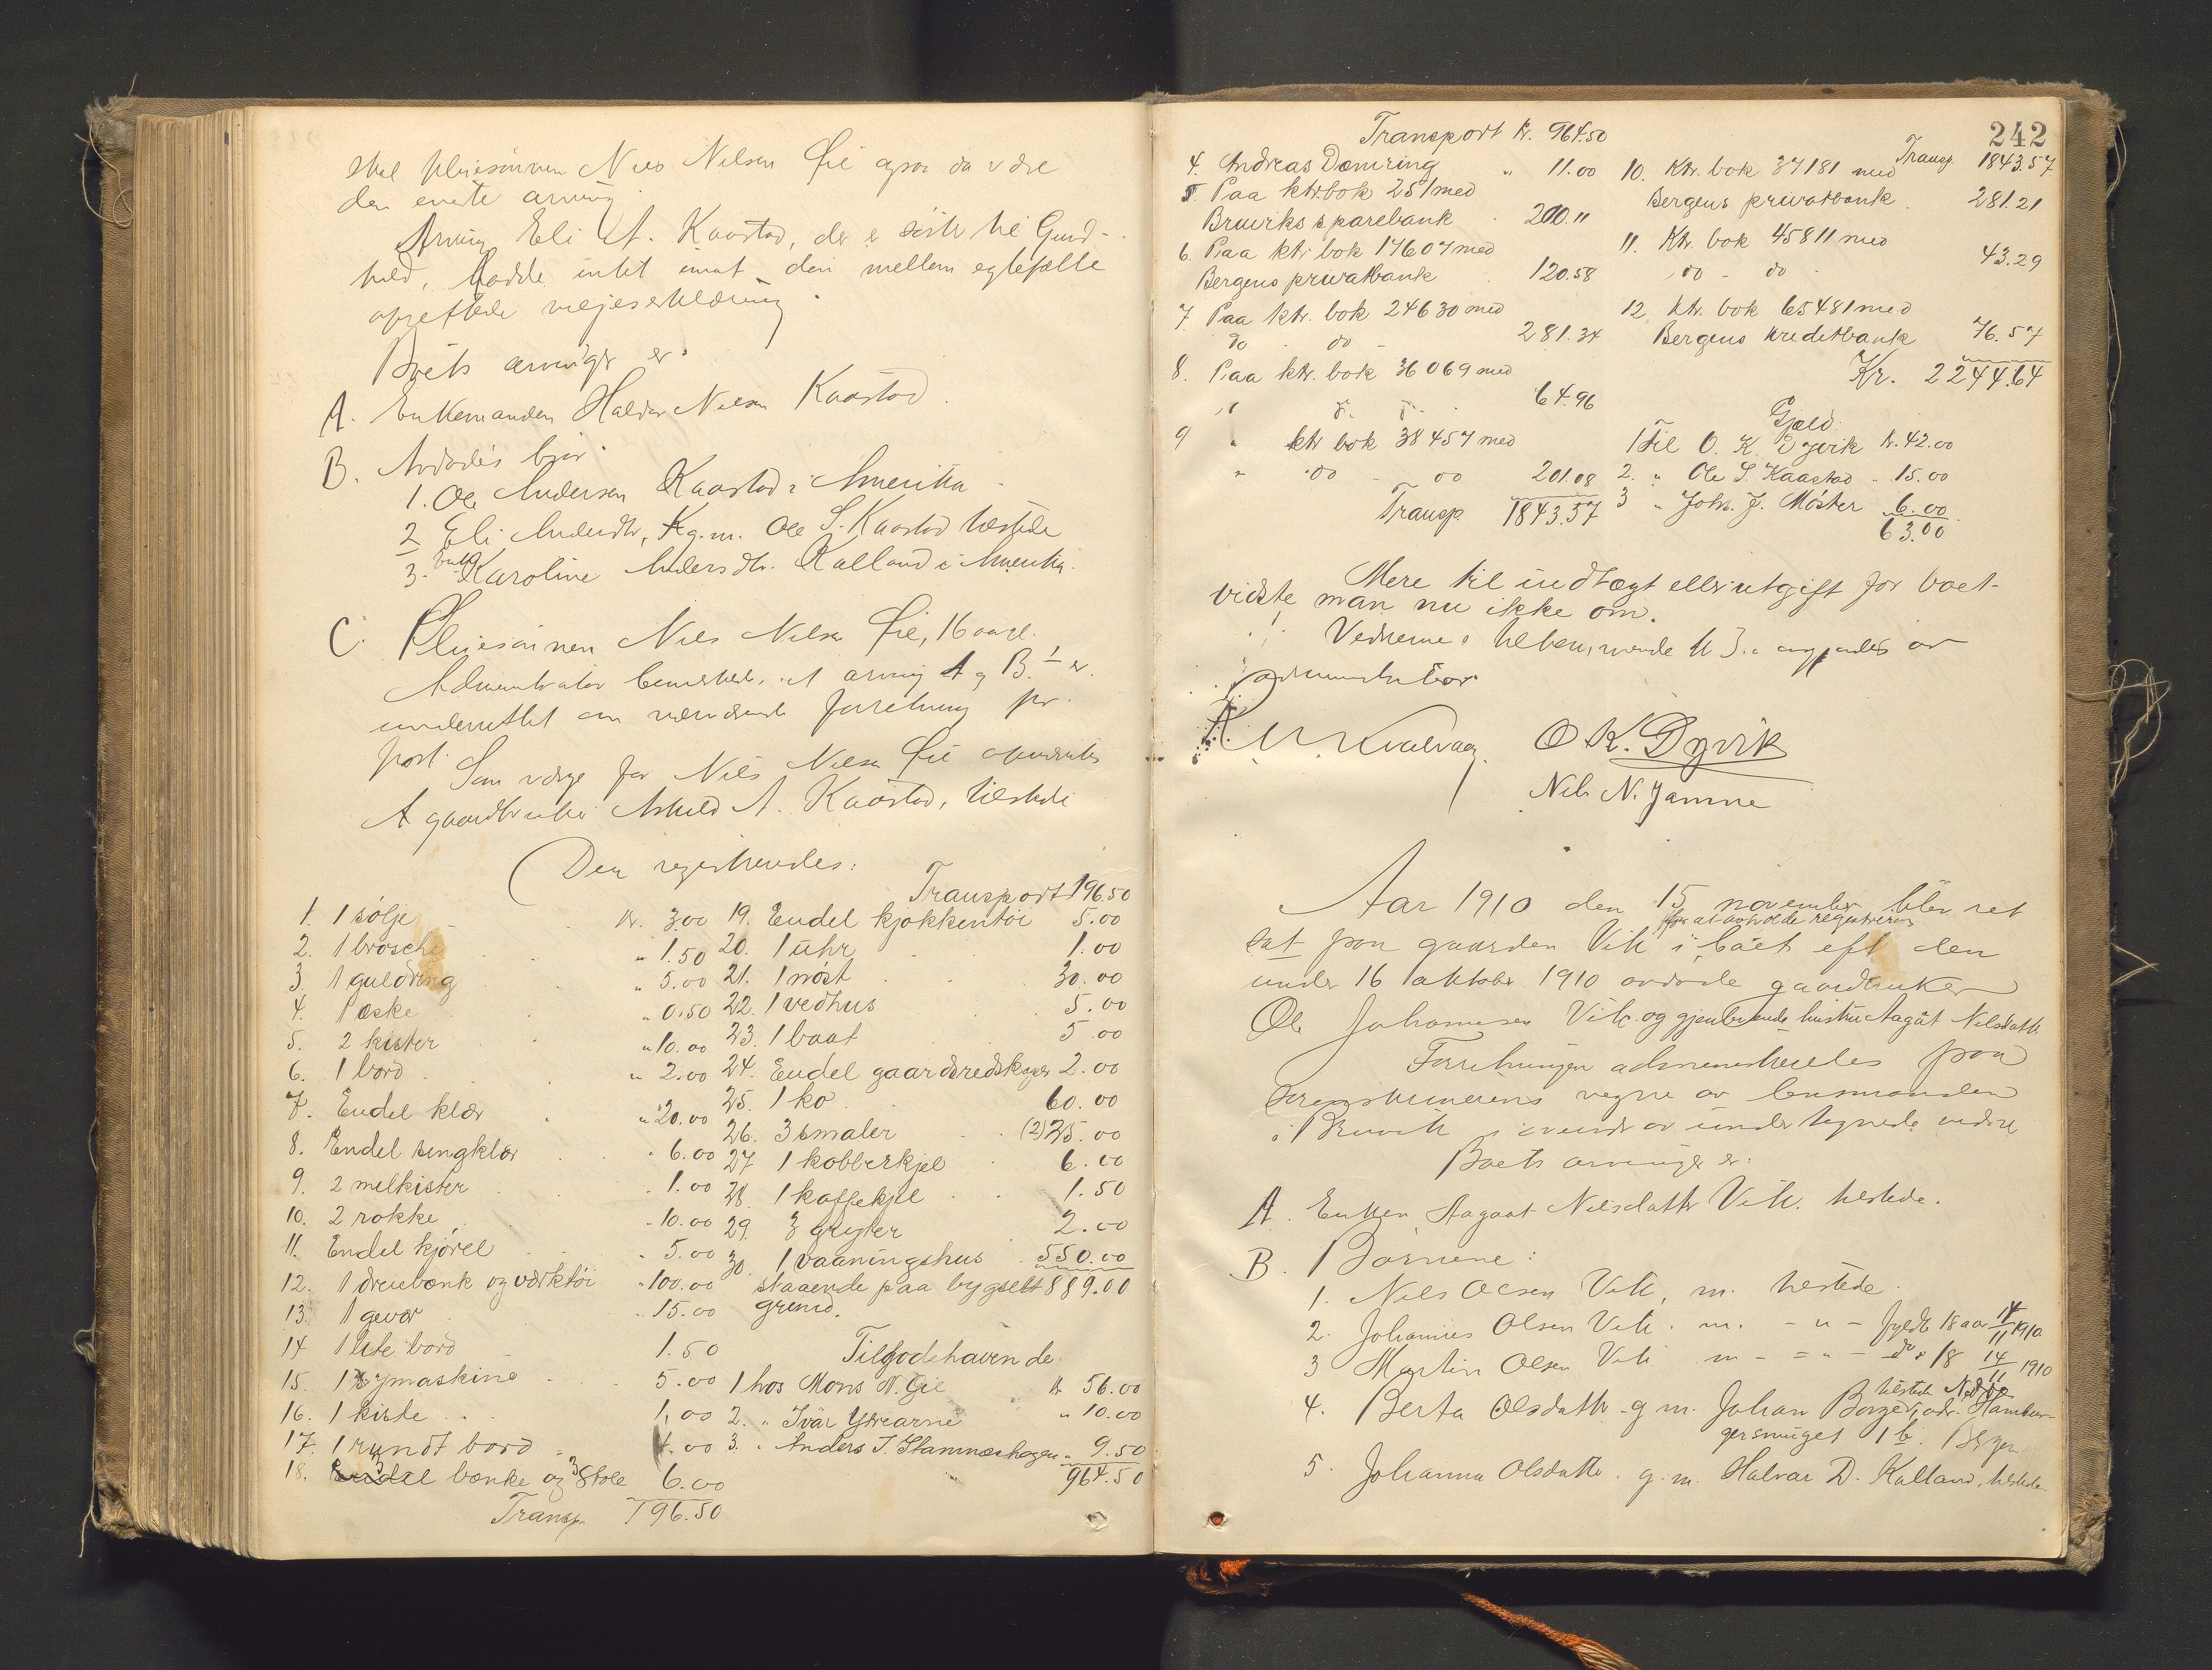 skal pleiesønnen Nils Nilsen Øie ogsaa da være
den eneste arving
Arving Eli A. Kaastad, der er søster til Gund-
hild, hadde intet imot den mellem egtefælle
oprettede viljeserklæring.
Boets arvinger er:
A. Enkemanden Haldor Nilsen Kaastad.
B. Avdødes bror
1. Ole Andersen Kaastad i Amerika
2 Eli Andersdtr, g. m. Ole S. Kaastad tilstede
3. Karoline Andersdtr. Kalland i Amerika.
C. Pleiesønnen Nils Nilsen Øie, 16 aar.
Administrator bemerkede, at arving A og B. 1 er
underrettet om nærværende forretning pr.
post.
Som verge for Nils Nilsen Øie opnævntes
gaardbruker A. Kaastad, tilstede
Der registrertes:
Transport 196.50
1. 1 sølje kr. 3.00
2. 1 brosche " 1.50
3. 1 guldring " 5.00
4. 1 æske " 0.50
5. 2 kister " 10.00
6. 1 bord " 2.00
7. Endel klær " 20.00
8. Endel sengklær " 6.00
9. 2 melkister " 1.00
10. 2 rokke " 10.00
11. Endel kjørel " 5.00
12. 1 dreiebænk og værktøi " 100.00
13. 1 gevær " 15.00
14 1 lite bord 1.50
15. 1 symaskine 5.00
16. 1 kiste 1.00
17. 1 rundt bord 4.00
18. 3 bænke og 3 stole 6.00
Transp. 196.50
19. Endel kjøkkentøi 5.00
20. 1 uhr 1.00
21. 1 nøst 30.00
22. 1 vedhus 5.00
23. 1 baat 5.00
24. Endel gaardsredskaper 2.00
25. 1 ko 60.00
26. 3 smaler (2) 25.00
27 1 kobberkjel 6.00
28. 1 kaffekjel 1.50
29. 3 gryter 2.00
30. 1 vaaningshus 550.00
staaende paa bygselt 889.00
grund.
Tilgodehavende:
1 hos Mons N. Øie kr 56.00
2. " Ivar Ytrearne " 10.00
3. " Anders J. Stamneshagen " 9.50
964.50
242
Transport kr. 964.50
4. Andreas Dømring " 11.00
5. Paa ktr.bok 251 med
Bruviks sparebank 200.11
6. Paa ktr bok 17607 med
Bergens privatbank 120.58
7. Paa ktr. bok 24630 med
do - do - 281.34
8. Paa ktr. bok 36069 med
" do do 64.96
9 " ktr bok 38457 med
" do - do 201.08
Transp. 1843.57
Transp. 1843.57
10. Ktr. bok 37181 med
Bergens privatbank 281.21
11. Ktr. bok 45811 med
do - do - 43.29
12. ktr. bok 65481 med
Bergens kreditbank 76.57
Kr. 2244.64
Gjæld:
1 Til O. K. Dyvik kr. 42.00
2. " Ole S. Kaastad - 15.00
3 " Joh. J. Møster 6.00
63.00
Mere til indtægt eller utgift for boet
vidste man nu ikke om.
Vedrørende av
administrator
O K. Dyvik
Nils N. Jamne
Aar 1910 den 15 november blev ret
for at avholde registrering
sat paa gaarden Vik i boet efter den
under 16 oktober 1910 avdøde gaardbruker
Ole Johannesen Vik og gjenlevende hustru Aagåt Nilsdatter
Forretningen administrertes paa
sorenskriverens vegne av lensmanden
i Bruvik i overvær av undertegnede vidner
Boets arvinger er:
A. Enken Aagaat Nilsdatter Vik. tilstede.
B. Børnene:
1. Nils Olsen Vik, m. tilstede
2. Johannes Olsen Vik. m. - " - fyldte 18 aar 14/11 1910
3 Martin Olsen Vik m - " - do 18 14/11 1910
tilstede
4. Berta Olsdatter g m. Johan Borge, adr. Hambur-
gersmuget 1 b. Bergen
5. Johanna Olsdatter. g. m. Halvar D. Kalland, tilstede